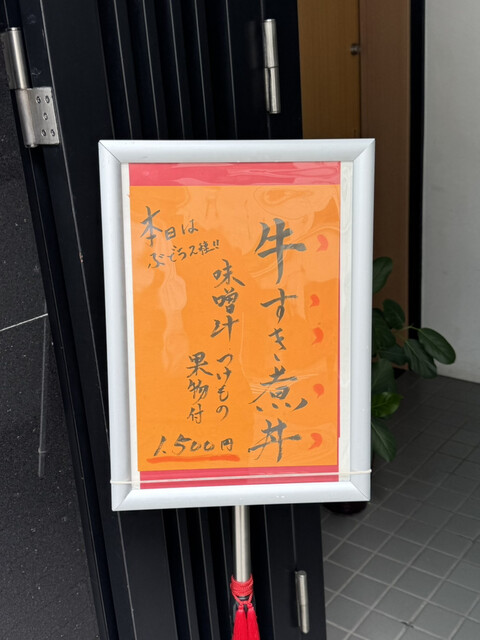 牛すき煮丼
味噌汁 つけもの
果物付
1.500円
本日は
ぶどう2種!!